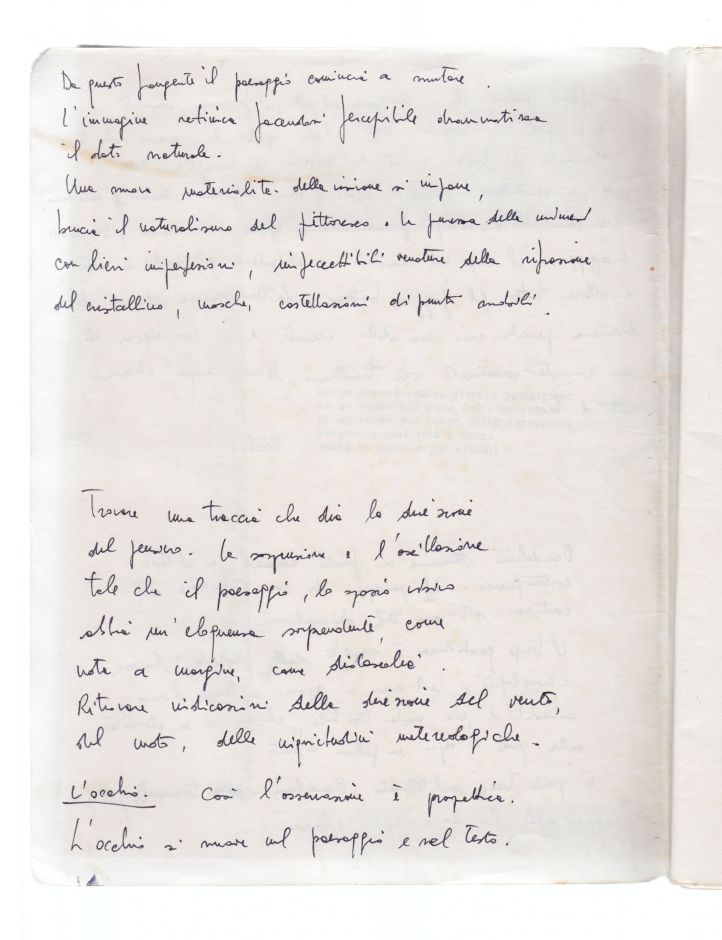 Da questo frangente il paesaggio comincia a mutare.
L'immagine retinica facendosi percepibile drammatizza
il dato naturale.
Una nuova materialità della visione si impone,
brucia il naturalismo del pittoresco. la purezza della
con lievi imperfezioni, impercettibili venature della rifrazione
del cristallino, mosche, costellazioni di punti
Trovare una traccia che dia la direzione
del pensiero. la sospensione e l'oscillazione
tale che il paesaggio, lo spazio visivo
abbia un'eloquenza sorprendente, come
nota a margine, come didascalia.
Ritrovare indicazioni della direzione del vento,
del moto, delle inquietudini metereologiche.
L'occhio. Così l'osservazione è proiettica.
L'occhio si muove nel paesaggio e nel testo.